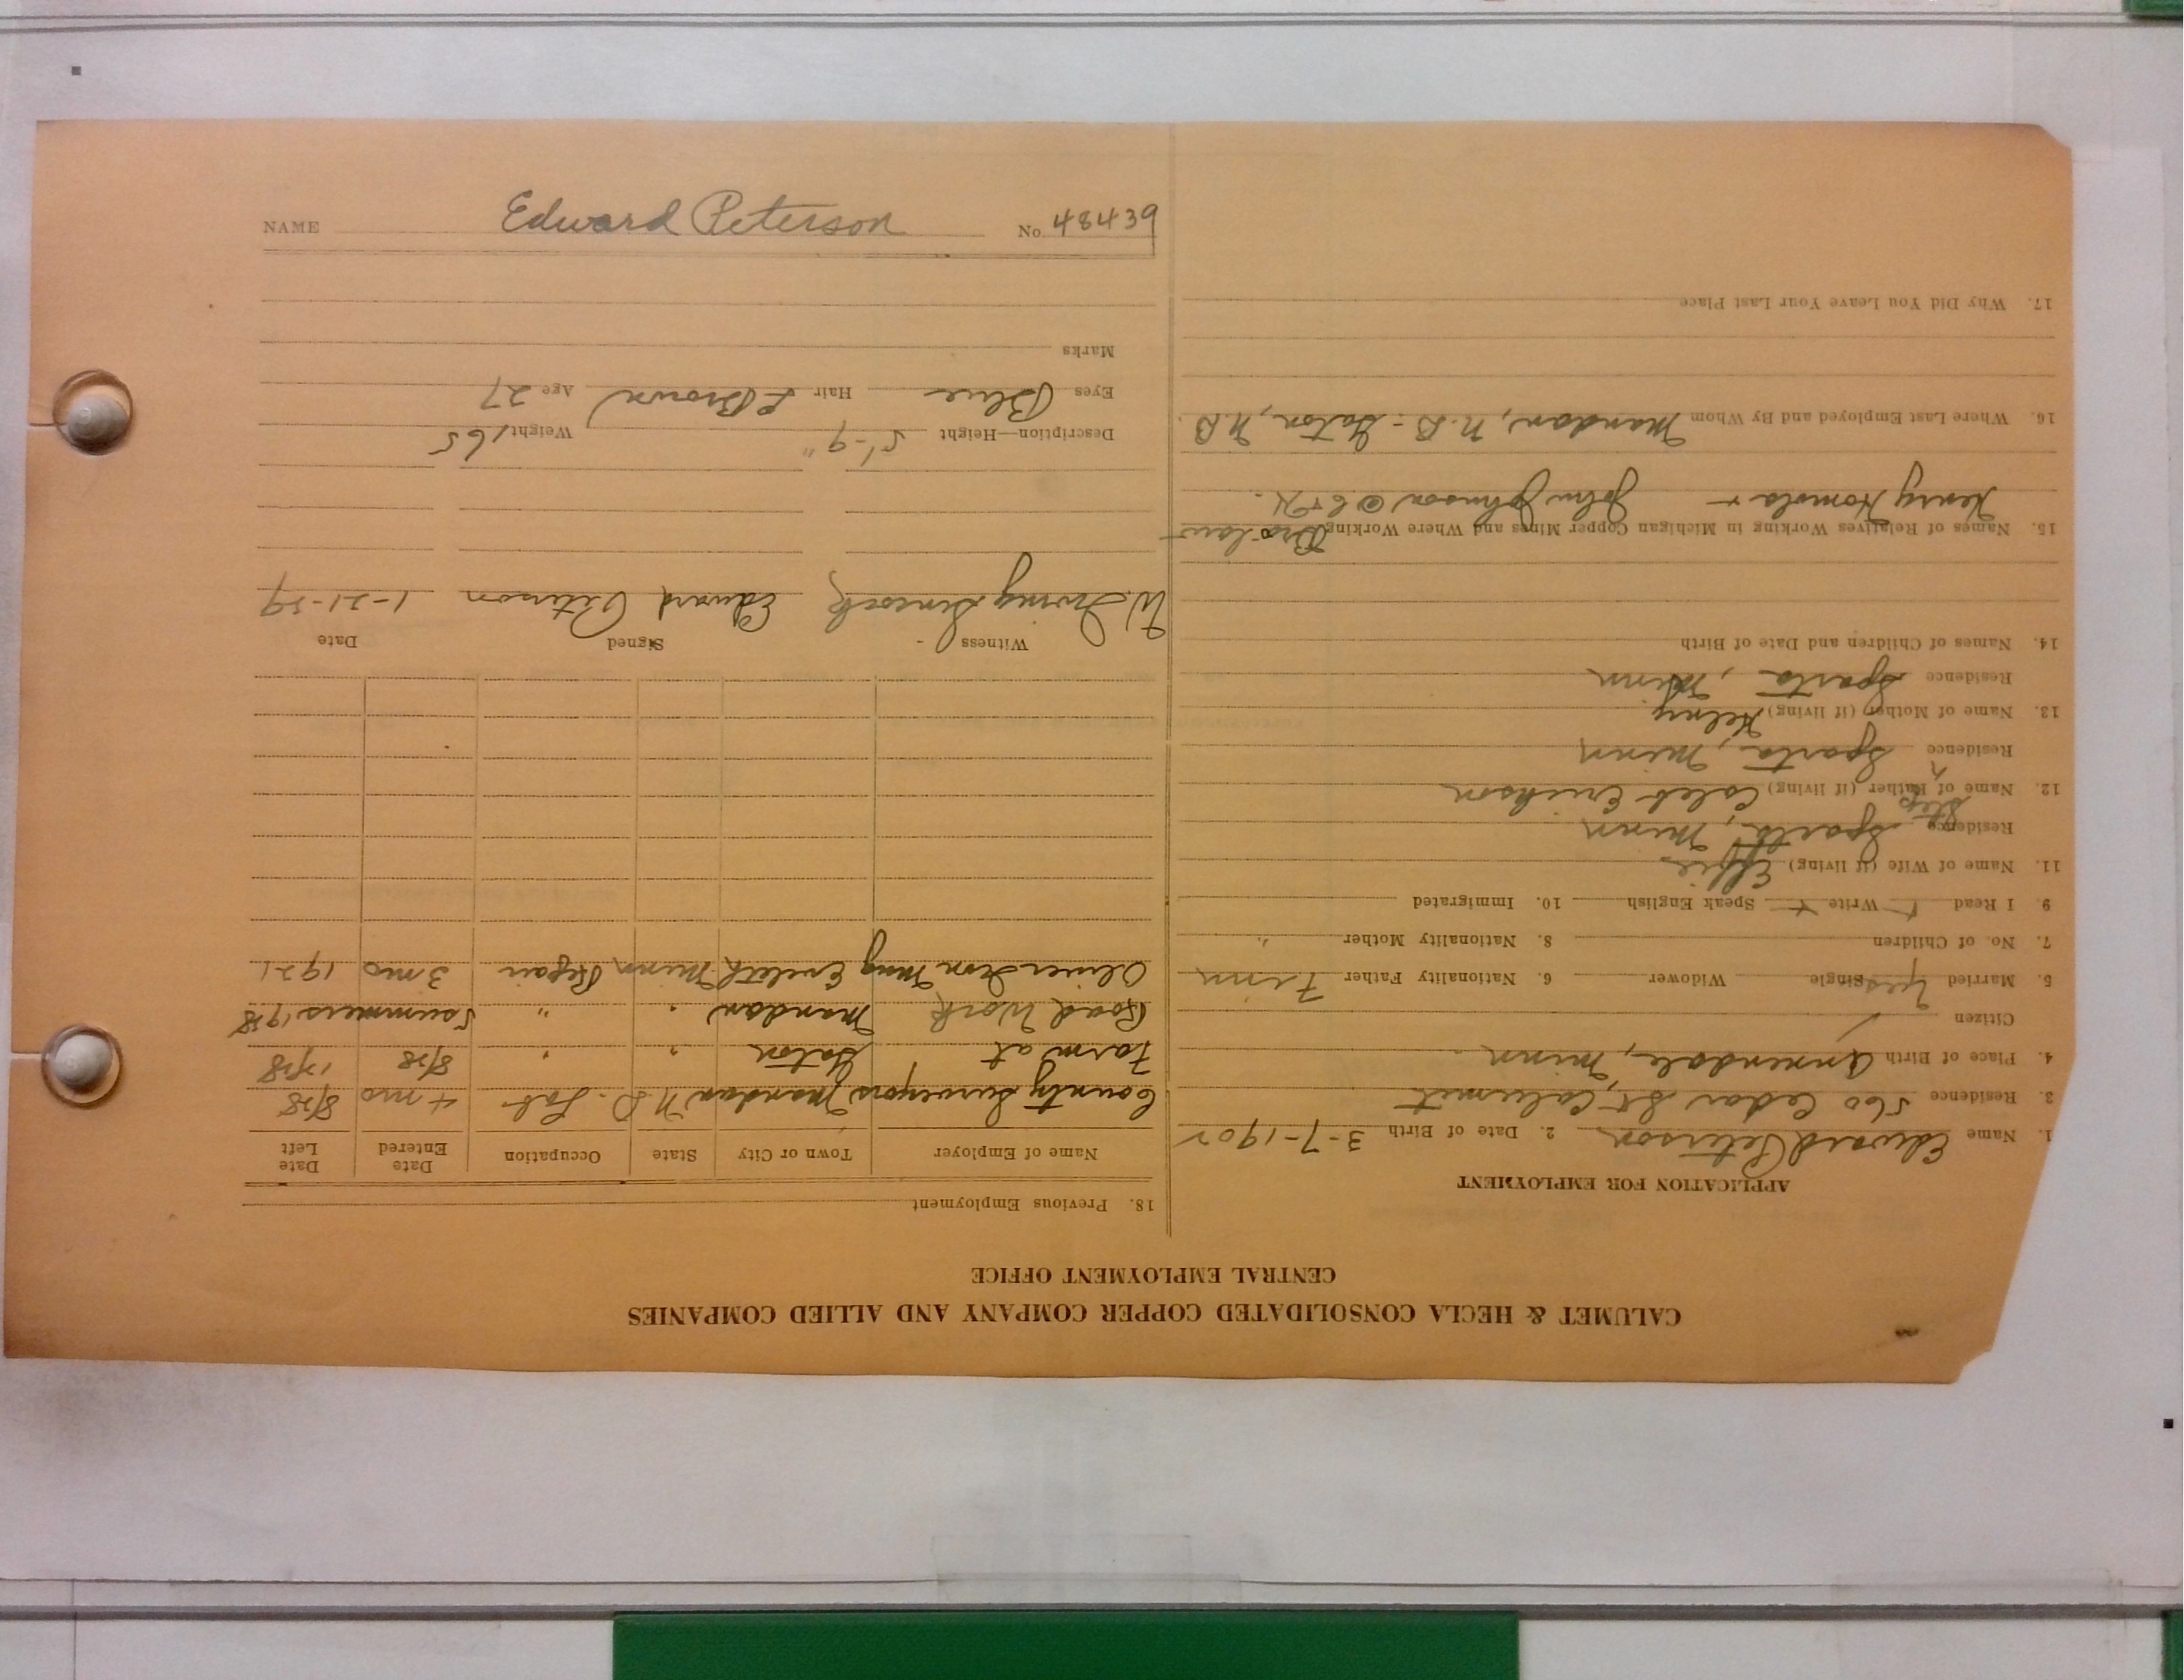 CALUMET & HECLA CONSOLIDATED COPPER COMPANY AND ALLIED COMPANIES
CENTRAL EMPLOYMENT OFFICE
APPLICATION FOR EMPLOYMENT
1. Name Edward Peterson 2. Date of Birth 3-7-1902
3. Residence 560 Cedar St, Calumet
4. Place of Birth Annendale, Minn.
Citizen
5. Married Yes Single Widower 6. Nationality Father Finn
7. No. of Children 8. Nationality Mother "
9. I Read Write Speak English 10. Immigrated
11. Name of Wife (if living) Effie
Residence Sparta, Minn
12. Name of Step Father (if living) Caleb Erickson
Residence Sparta, Minn
13. Name of Mother (if living)
Residence Sparta, Minn
14. Names of Children and Date of Birth
15. Names of Relatives Working in Michigan Copper Mines and Where Working Bro law
Henry Homola + John Johnson @ C+H.
16. Where Last Employed and By Whom Mandan, N.D. - Yaton, N.D.
17. Why Did You Leave Your Last Place
18. Previous Employment
Name of Employer Town or City State Occupation Date Entered Date Left
County Surveyors Mandan N.D. Lab 4 mo 8/28
Farm at Yaton " " 8/28 12/28
Road Work Mandan " " 5 summers 1928
Oliver Iron Mng Eveleth Minn Repair 3 mo 1921
Witness Signed Date
W. Irving Edward Peterson 1-21-29
Description—Height 5'-9" Weight 165
Eyes Blue Hair L Brown Age 27
Marks
NAME Edward Peterson No. 48439